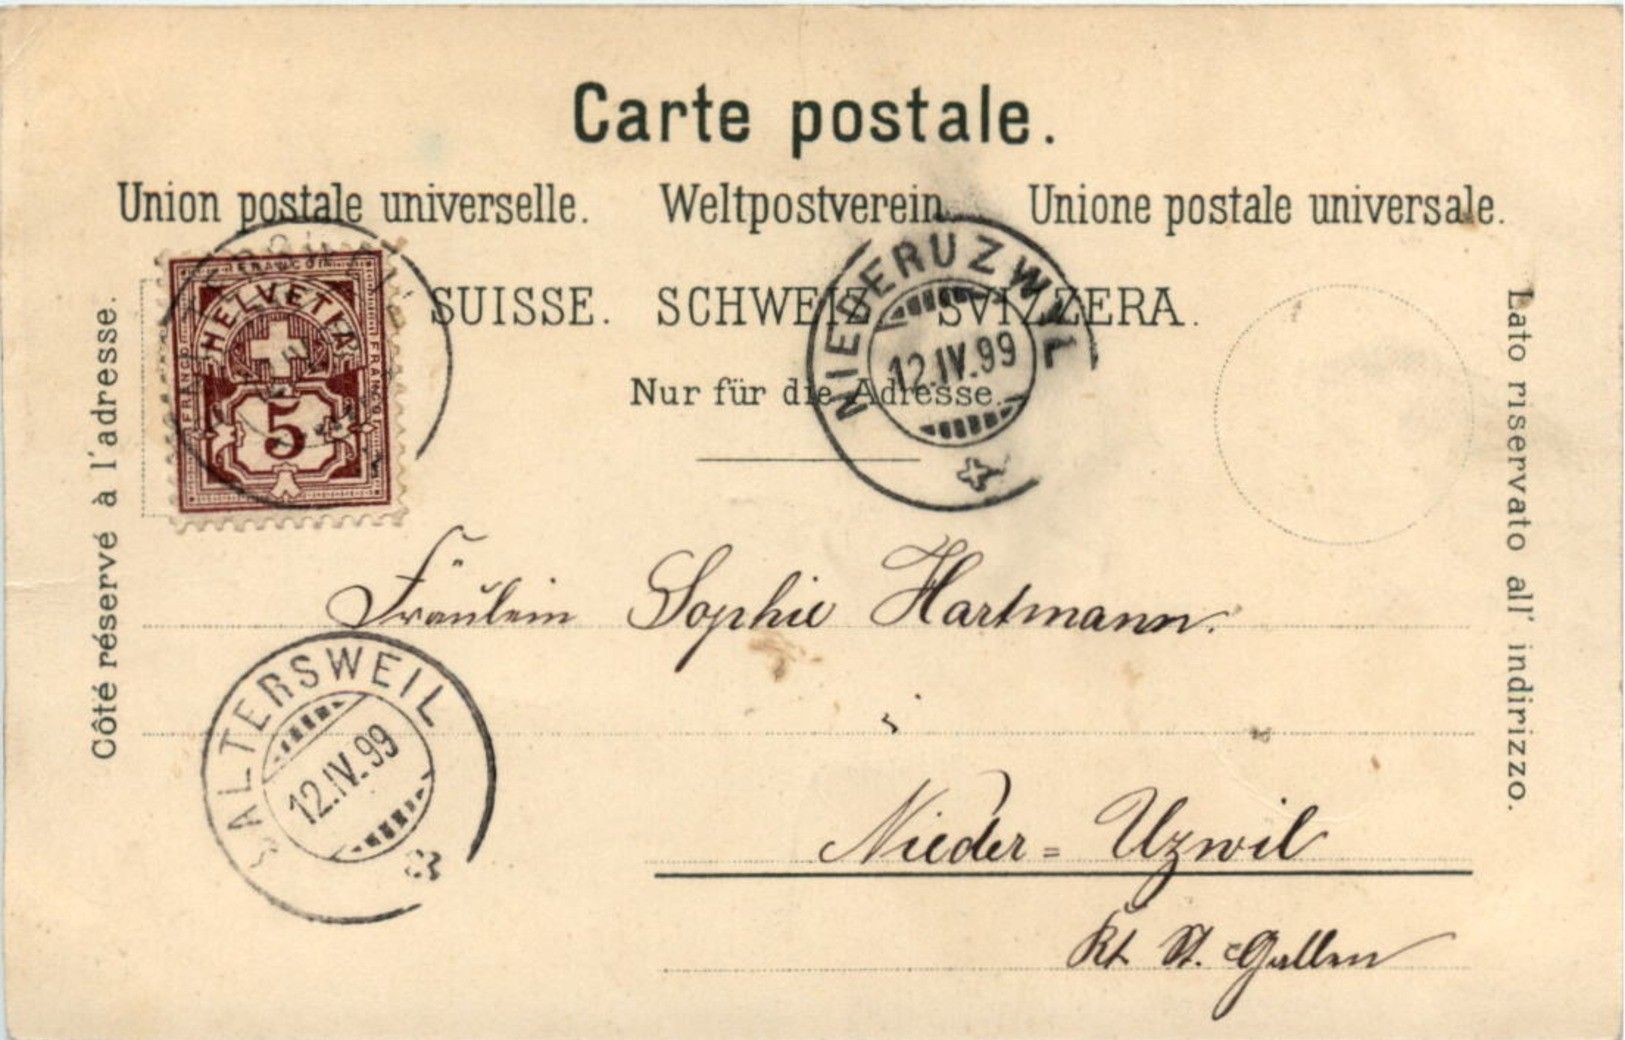 Carte postale.
Union postale universelle. Weltpostverein. Unione postale universale.
SUISSE. SCHWEIZ. SVIZZERA.
Nur für die Adresse.
Côté réservé à l'adresse.
Lato riservato all' indirizzo.
FRANCO
HELVETIA
FRANCO
FRANCO
5
NIEDERUZWIL
12.IV.99
Fräulein Sophie Hartmann.
BALTERSWEIL
12.IV.99
Nieder=Uzwil
Kt. St. Gallen